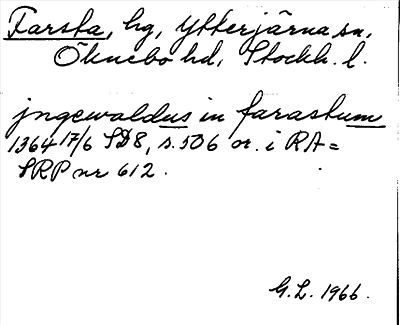 Farsta, hg, Ytterjärna sn,
Öknebo hd, Stockh. l.
jngewaldus in farastum
1364 17/6 SD8, s. 506 or. i RA =
SRP nr 612.
G.L. 1966.